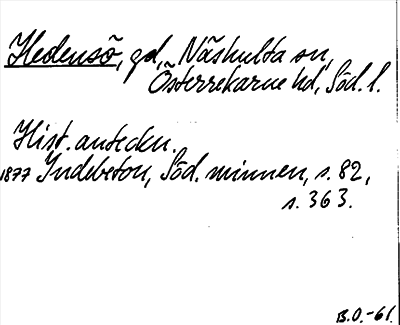 Hedensö, gd, Näshulta sn,
Österrekarne hd, Söd. l.
Hist. anteckn.
1877 Indebetou, Söd. minnen, s. 82,
s. 363.
B.O.-61.